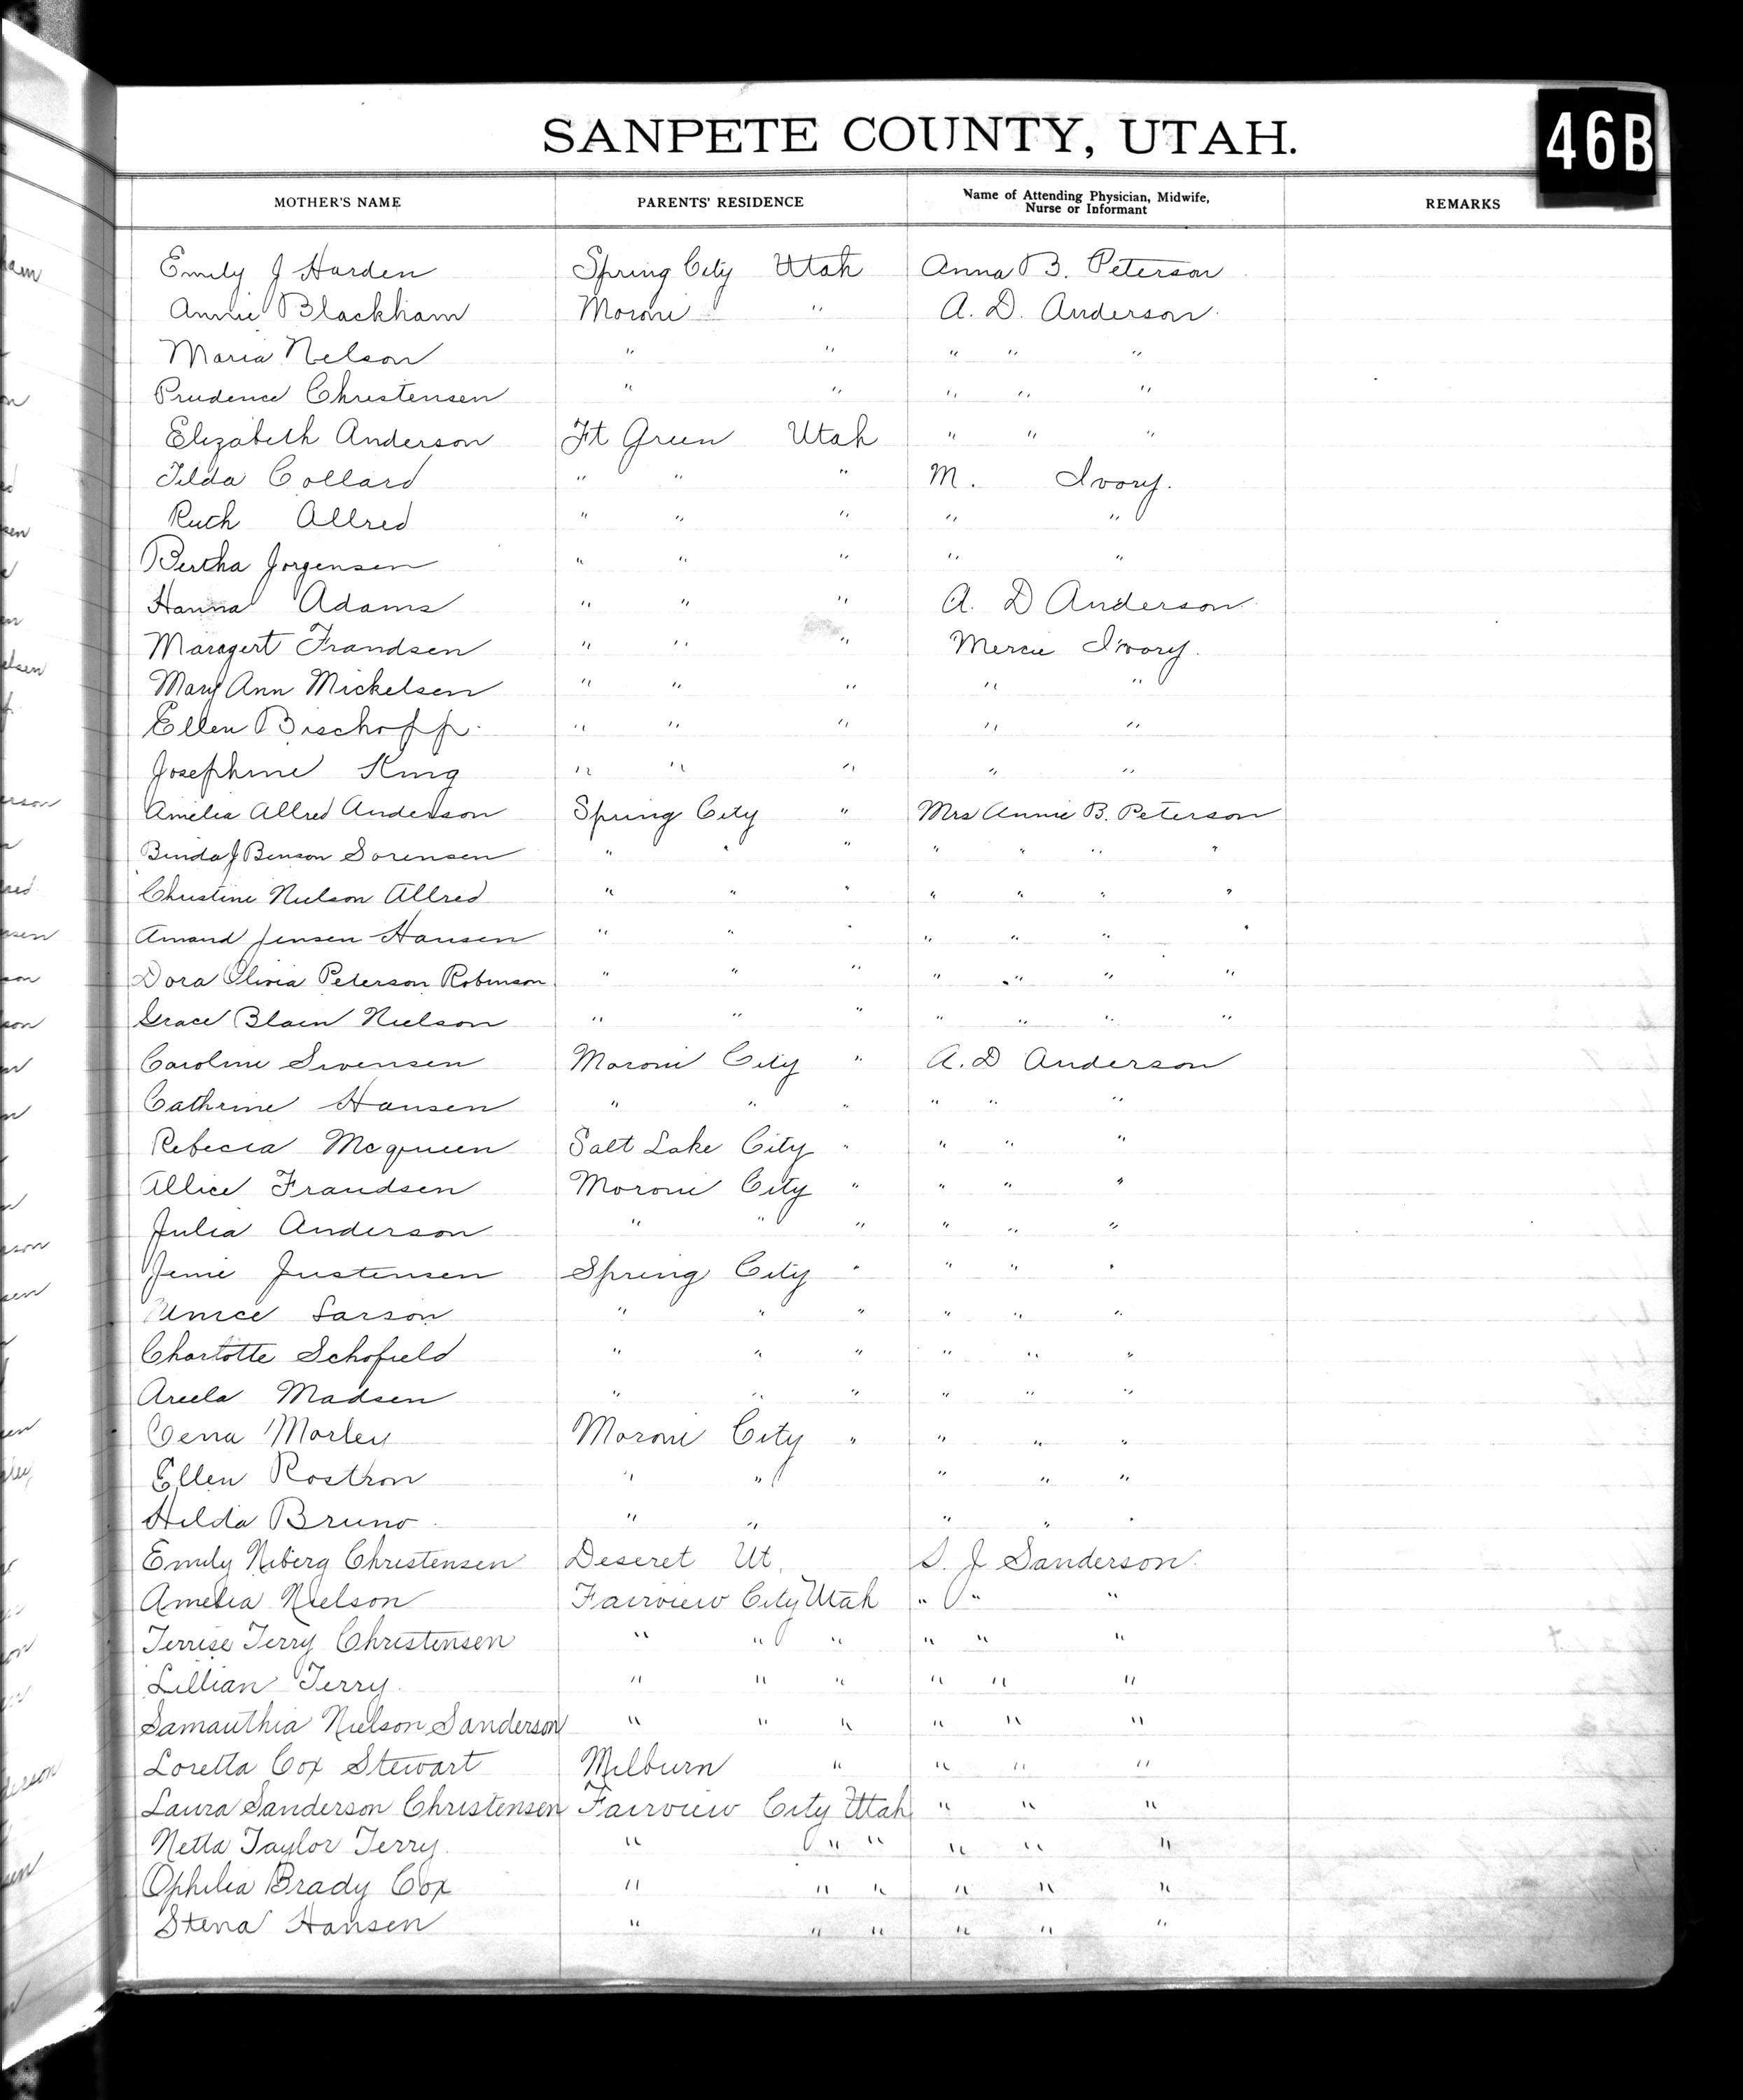 SANPETE COUNTY, UTAH.
46B
MOTHER'S NAME PARENTS' RESIDENCE Name of Attending Physician, Midwife, Nurse or Informant REMARKS
Emily J Harden Spring City Utah Anna B. Peterson
Annie Blackham Moroni " A. D. Anderson
Maria Nelson " " " " "
Prudence Christensen " " " " "
Elizabeth Anderson Ft Green Utah " " "
Tilda Collard " " " M. Ivory.
Ruth Allred " " " " "
Bertha Jorgensen " " " " "
Hanna Adams " " " A. D Anderson
Maragert Frandsen " " " Mercie Ivory.
Mary Ann Mickelsen " " " " "
Ellen Bischoff " " " " "
Josephine King " " " " "
Amelia Allred Anderson Spring City " Mrs Annie B. Peterson
J Benson Sorensen " " " " " " "
Christine Nielson Allred " " " " " " "
Amand Jensen Hansen " " " " " " "
Dora Olivia Peterson Robinson " " " " " " "
Grace Blain Nielson " " " " " " "
Caroline Swensen Moroni City " A. D Anderson
Cathrine Hansen " " " " " "
Rebecca Mcqueen Salt Lake City " " " "
Allice Frandsen Moroni City " " " "
Julia Anderson " " " " " "
Jenie Justensen Spring City " " " "
Larson " " " " " "
Charlotte Schofield " " " " " "
Areela Madsen " " " " " "
Cena Morley Moroni City " " " "
Ellen Rostron " " " " "
Hilda Bruno " " " " "
Emily Niberg Christensen Deseret Ut, S. J Sanderson
Amelia Nielson Fairview City Utah " " "
Terrise Terry Christensen " " " " " "
Lillian Terry. " " " " " "
Samauthia Nielson Sanderson " " " " " "
Loretta Cox Stewart Milburn " " " "
Laura Sanderson Christensen Fairview City Utah " " "
Netta Taylor Terry. " " " " " "
Ophilia Brady Cox " " " " " "
Stena Hansen " " " " " "